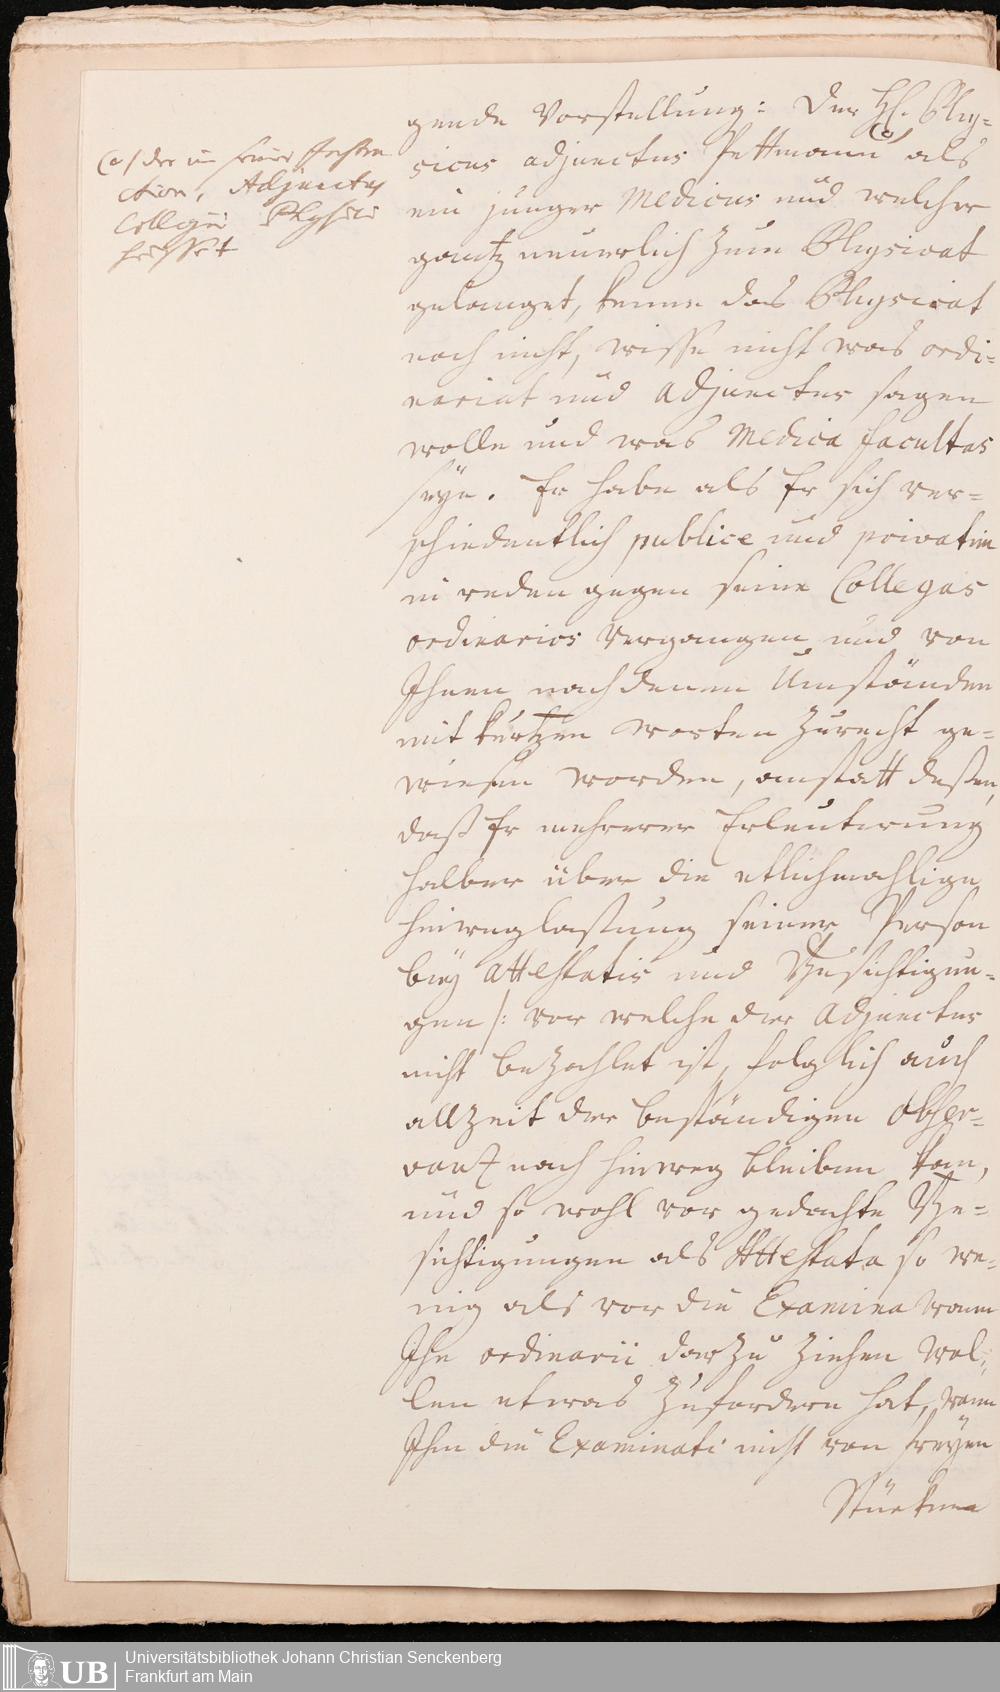 gende Vorstellung: Der H. Phy-
sicus adjunctus Pettmann (a) als
ein junger Medicus und welcher
gantz neuerlich zum Physicat
gelanget, kenne das Physicat
noch nicht, wisse nicht was ordi-
nariat und Adjunctus sagen
wolle und was Medica facultas
seye. Er habe als Er sich ver-
schiedentlich publice und privatim
in reden gegen seine Collegas
ordinarios vergangen und von
Ihnen nach denen Umständen
mit kurtzen worten zurecht ge-
wiesen worden, anstatt deßen,
daß Er mehrerer Erleuterung
halber über die etlichmahlige
hinweglaßung seiner Person
bey attestatis und Besichtigun-
gen /: vor welche der Adjunctus
nicht bezahlet ist, folglich auch
allzeit der beständigen Obser-
vantz nach hinweg bleiben kan,
und so wohl vor gedachte Be-
sichtigungen als Attestata so we-
nig als vor die Examina wann
Ihn ordinarii darzu ziehen wol-
len etwas zufordern hat, wann
Ihm die Examinati nicht von freyen
Stücken
(a) der in seiner
ction, Adjunctus
Collegii Physici
heisset
UB
Universitätsbibliothek Johann Christian Senckenberg
Frankfurt am Main